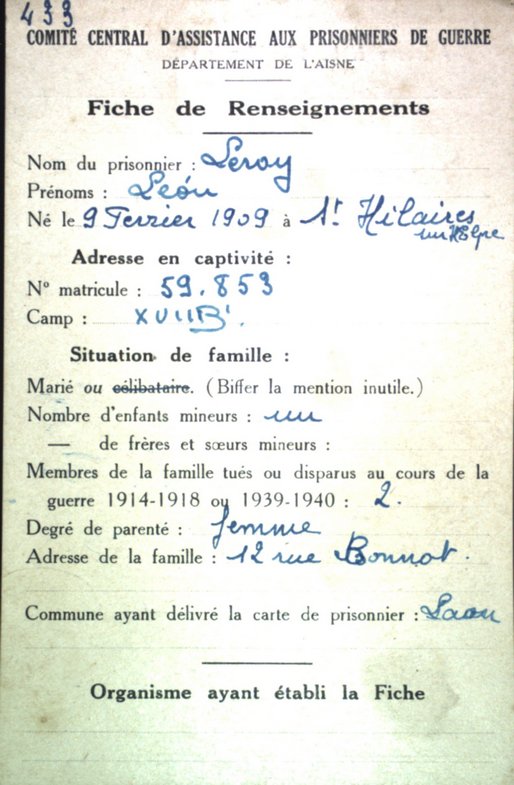 433
COMITÉ CENTRAL D'ASSISTANCE AUX PRISONNIERS DE GUERRE
DÉPARTEMENT DE L'AISNE
Fiche de Renseignements
Nom du prisonnier : Leroy
Prénoms : Léon
Né le 9 Fevrier 1909 à St Hilaires
sur Helpe
Adresse en captivité :
N° matricule : 59.853
Camp : XVIIB.
Situation de famille :
Marié ou célibataire. (Biffer la mention inutile.)
Nombre d'enfants mineurs : un
— de frères et sœurs mineurs :
Membres de la famille tués ou disparus au cours de la
guerre 1914-1918 ou 1939-1940 : 2.
Degré de parenté : femme
Adresse de la famille : 12 rue Bonnot.
Commune ayant délivré la carte de prisonnier : Laon
Organisme ayant établi la Fiche